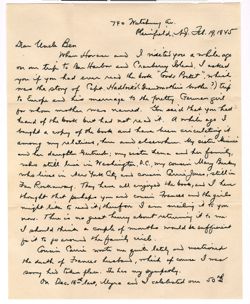 780 Watchung Av.
Plainfield, N.J. Feb. 19, 1945
Dear Uncle Ben
When Horace and I visited you a while ago
on our trip to Bar Harbor and Cranberry Island, I asked
you if you had ever read the book "God's Pocket", which
was the story of Capt. Hadlock's (Grandmother's brother?) trip
to Europe and his marriage to the pretty German girl
for whom mother was named. You said you had
heard of the book but had not read it. A while ago I
bought a copy of the book and have been circulating it
among my relatives, here and elsewhere. My sister
and her daughter, my sister, and her family,
who still live in Washington, D.C., my cousin Mary
who lives in New York City and cousin Annie Jones, still in
Far Rockaway. They have all enjoyed the book, and I have
thought that perhaps you and cousin Frances and the
might like to read it; therefore, I am sending it to you
now. There is no great hurry about returning it to me
I should think a couple of months would be sufficient
for it to go around the family circle.
Cousin Carrie wrote me quite lately and mentioned
the death of Frances' husband, which of course I was
sorry had taken place. To her my sympathy.
On Dec. last, and I celebrated our 50th